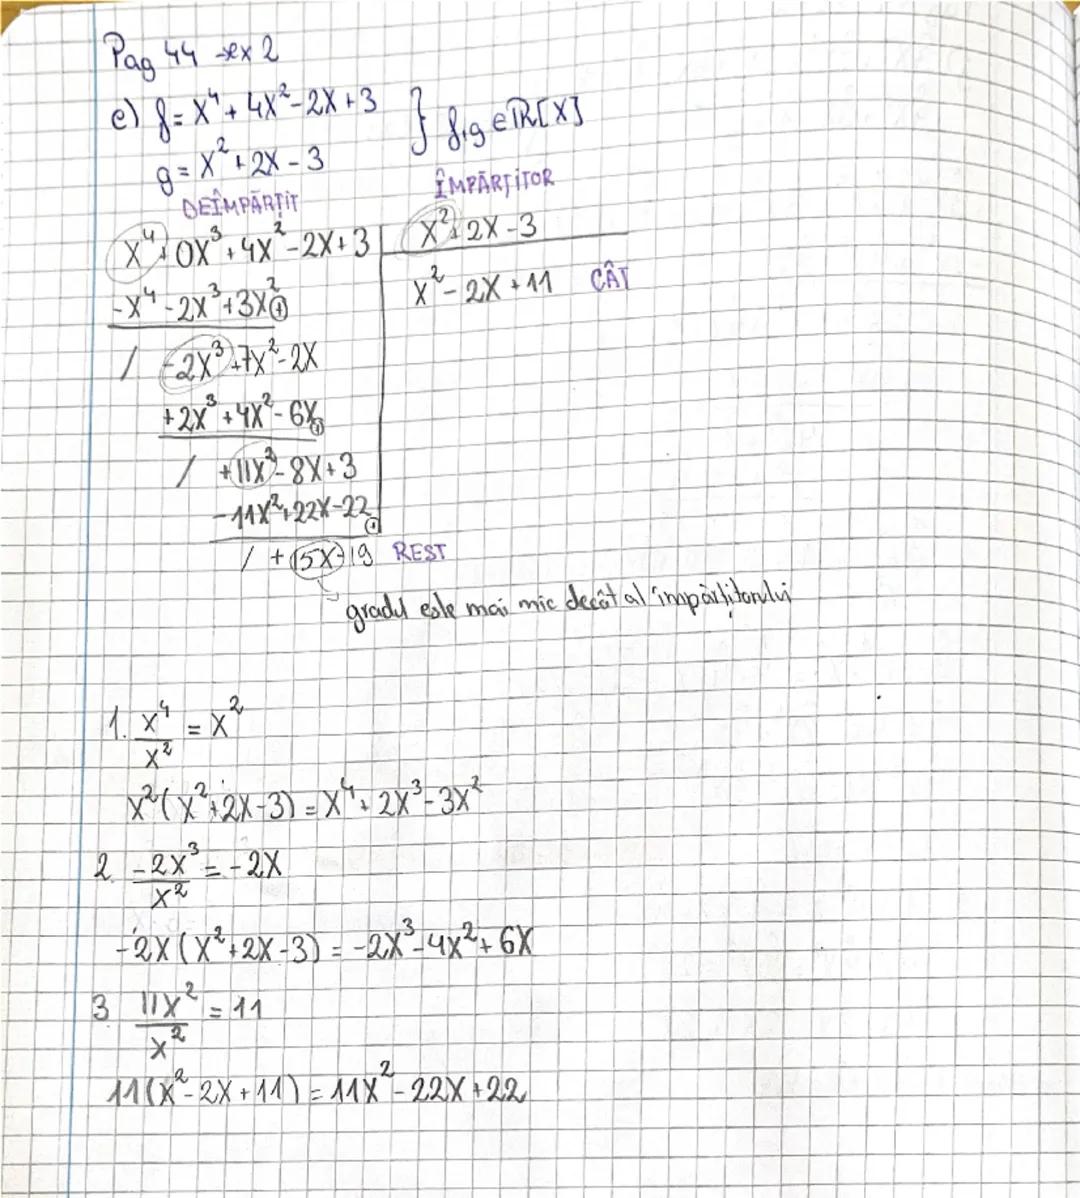 Pag 44 →ex 2
e) f = X⁴ + 4X² - 2X + 3 } f,g ∈ ℝ[X]
g = X² + 2X - 3
DEÎMPĂRȚIT ÎMPĂRȚITOR
X⁴ + 0X³ + 4X² - 2X + 3 | X² + 2X - 3
-X⁴ - 2X³ + 3X² ⊕ X² - 2X + 11 CÂT
/ -2X³ + 7X² - 2X
+2X³ + 4X² - 6X ⊕
/ +11X² - 8X + 3
-11X² + 22X - 22 ⊕
/ + 15X - 19 REST
gradul este mai mic decât al împărțitorului
1. X⁴/X² = X²
X²(X² + 2X - 3) = X⁴ + 2X³ - 3X²
2. -2X³/X² = -2X
-2X(X² + 2X - 3) = -2X³ - 4X² + 6X
3 11X²/X² = 11
11(X² - 2X + 11) = 11X² - 22X + 22